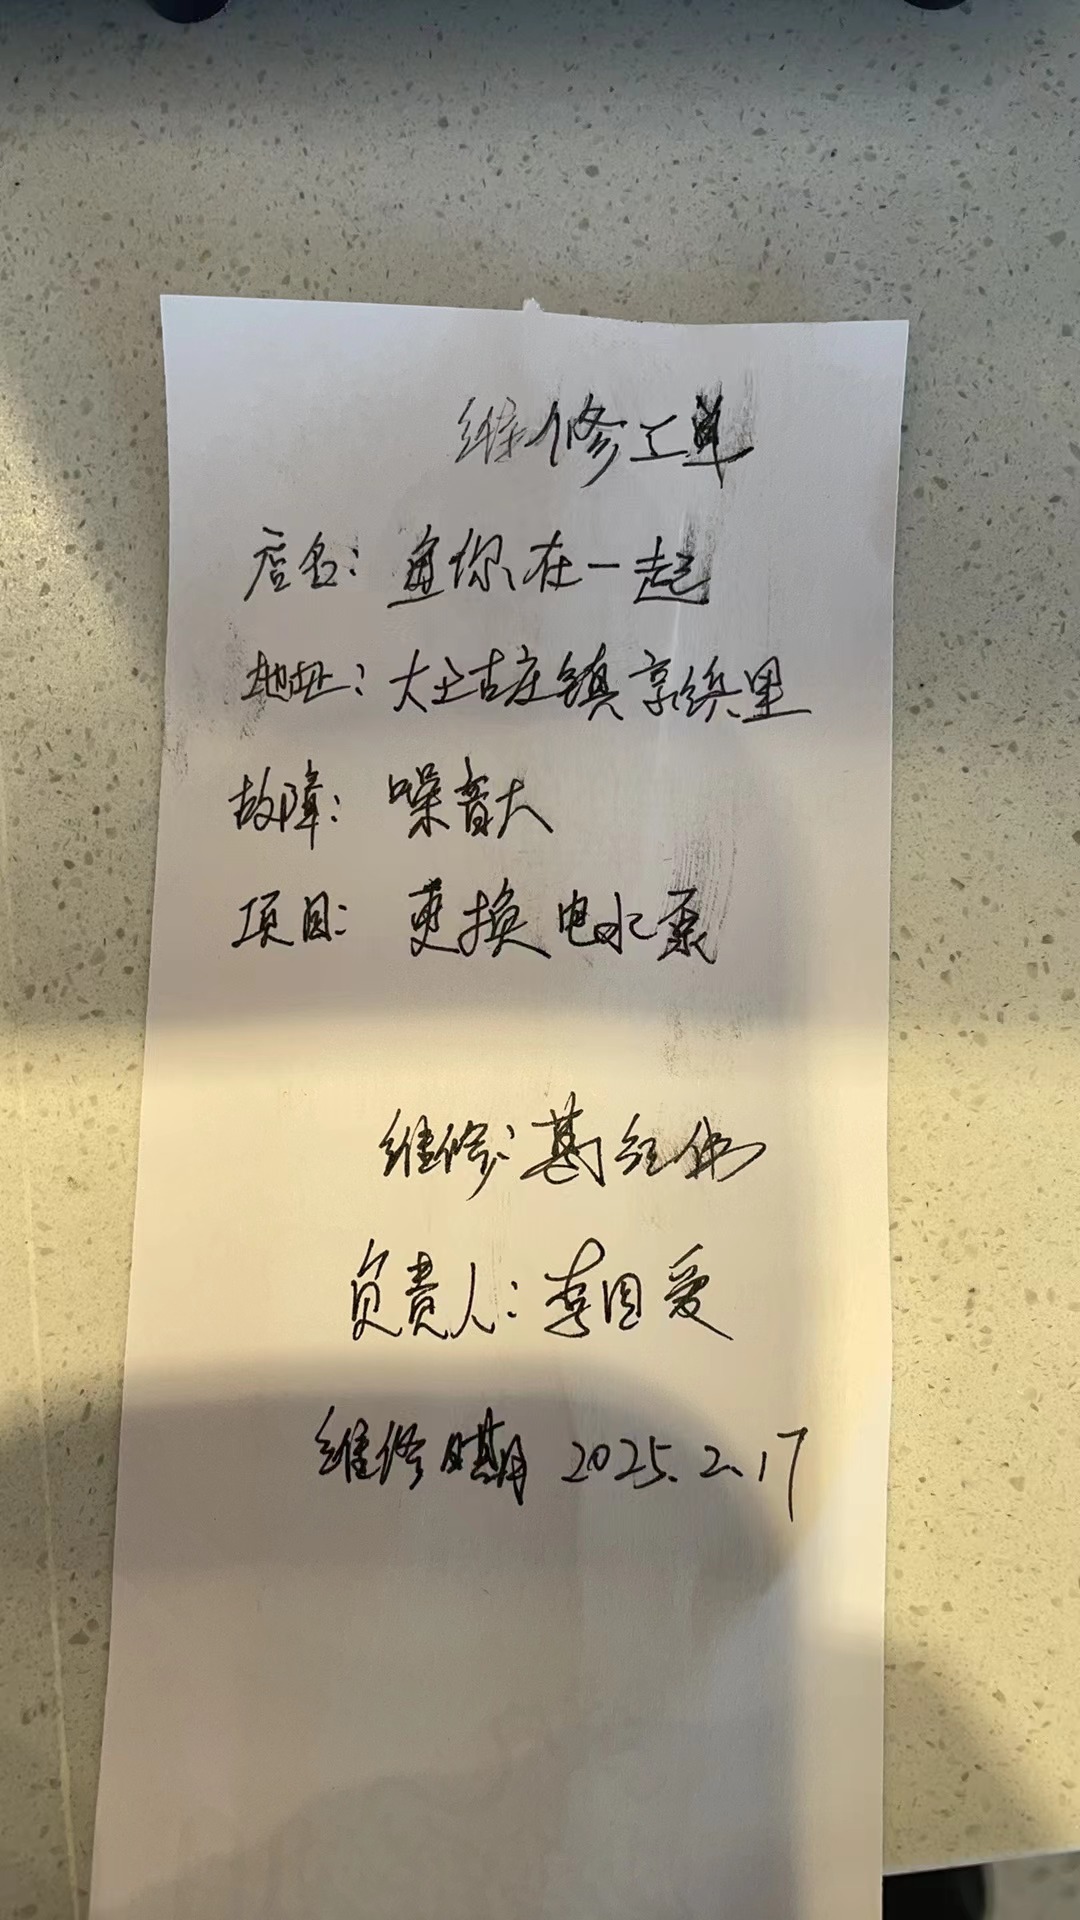 维修工单
店名：鱼你在一起
地址：大王古庄镇京滨里
故障：噪音大
项目：更换电水泵
维修：葛红伟
负责人：李国爱
维修日期 2025.2.17